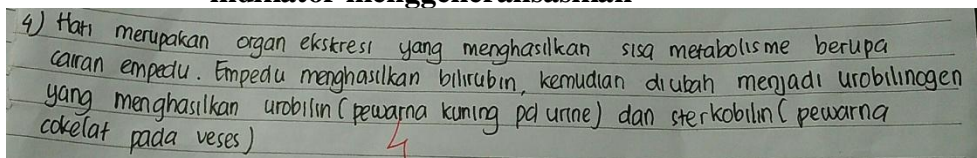 indikator menggeneralisasikan
4) Hati merupakan organ ekskresi yang menghasilkan sisa metabolisme berupa
cairan empedu. Empedu menghasilkan bilirubin, kemudian diubah menjadi urobilinogen
yang menghasilkan urobilin (pewarna kuning pd urine) dan sterkobilin (pewarna
cokelat pada veses)
4